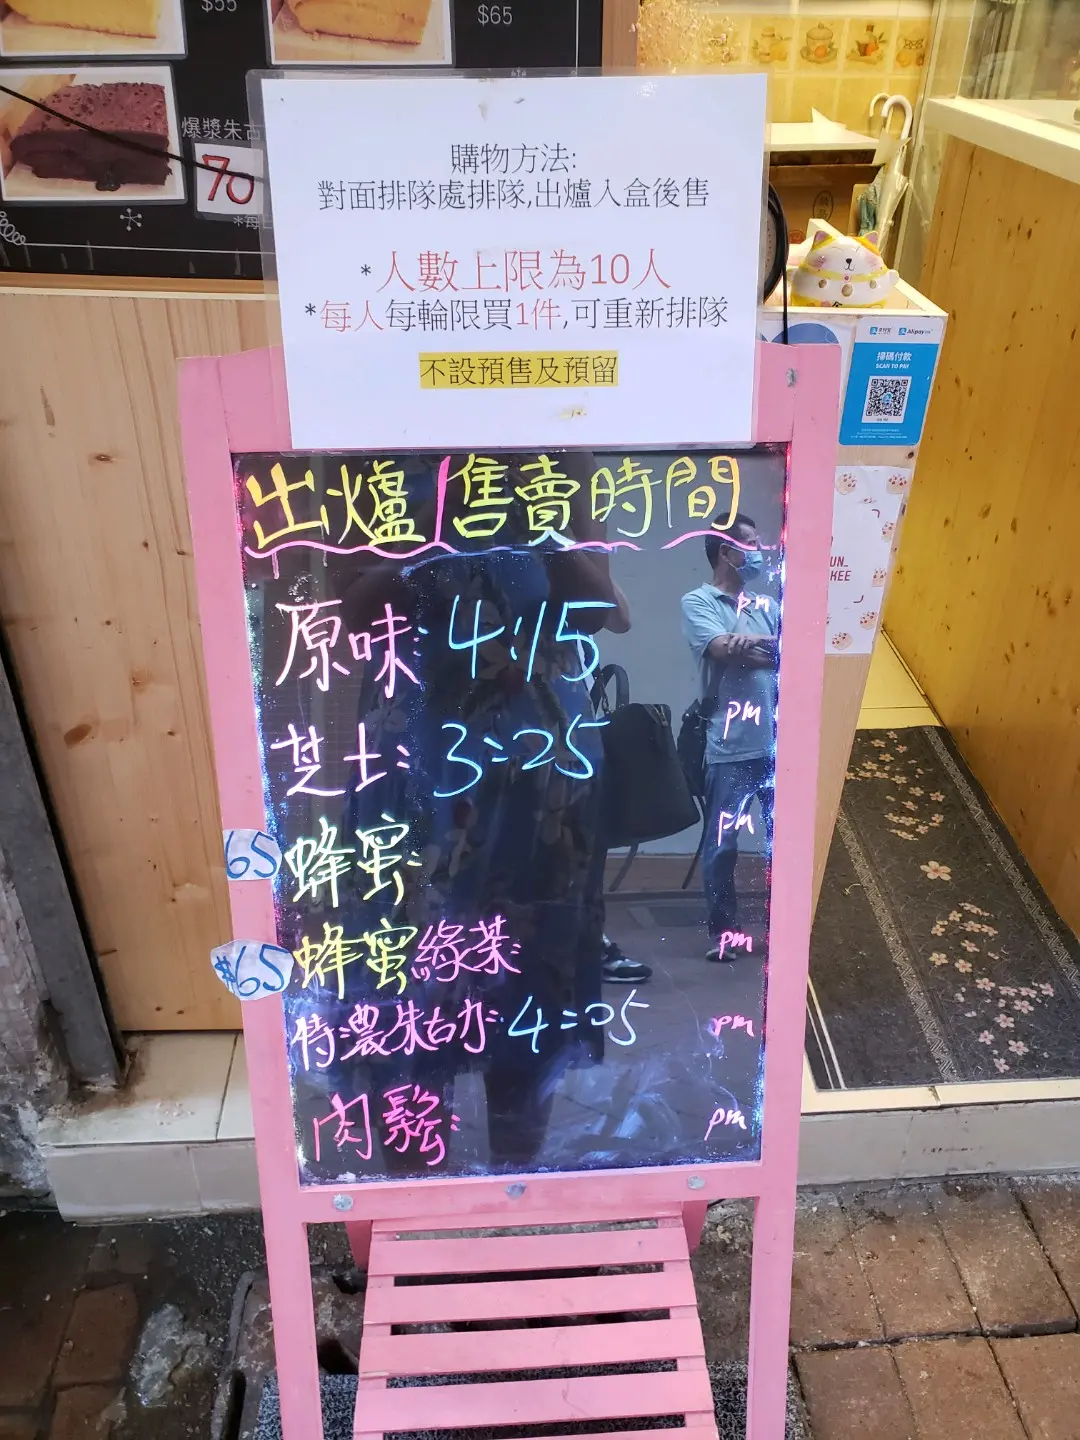 $55
$65
爆漿朱古
70
*每日
購物方法:
對面排隊處排隊,出爐入盒後售
*人數上限為10人
*每人每輪限買1件,可重新排隊
不設預售及預留
支付宝 Alipay
掃碼付款
SCAN TO PAY
UN_
KEE
出爐|售賣時間
原味: 4:15 pm
芝士: 3:25 pm
65 蜂蜜: pm
$65 蜂蜜綠茶: pm
特濃朱古力: 4:05 pm
肉鬆: pm